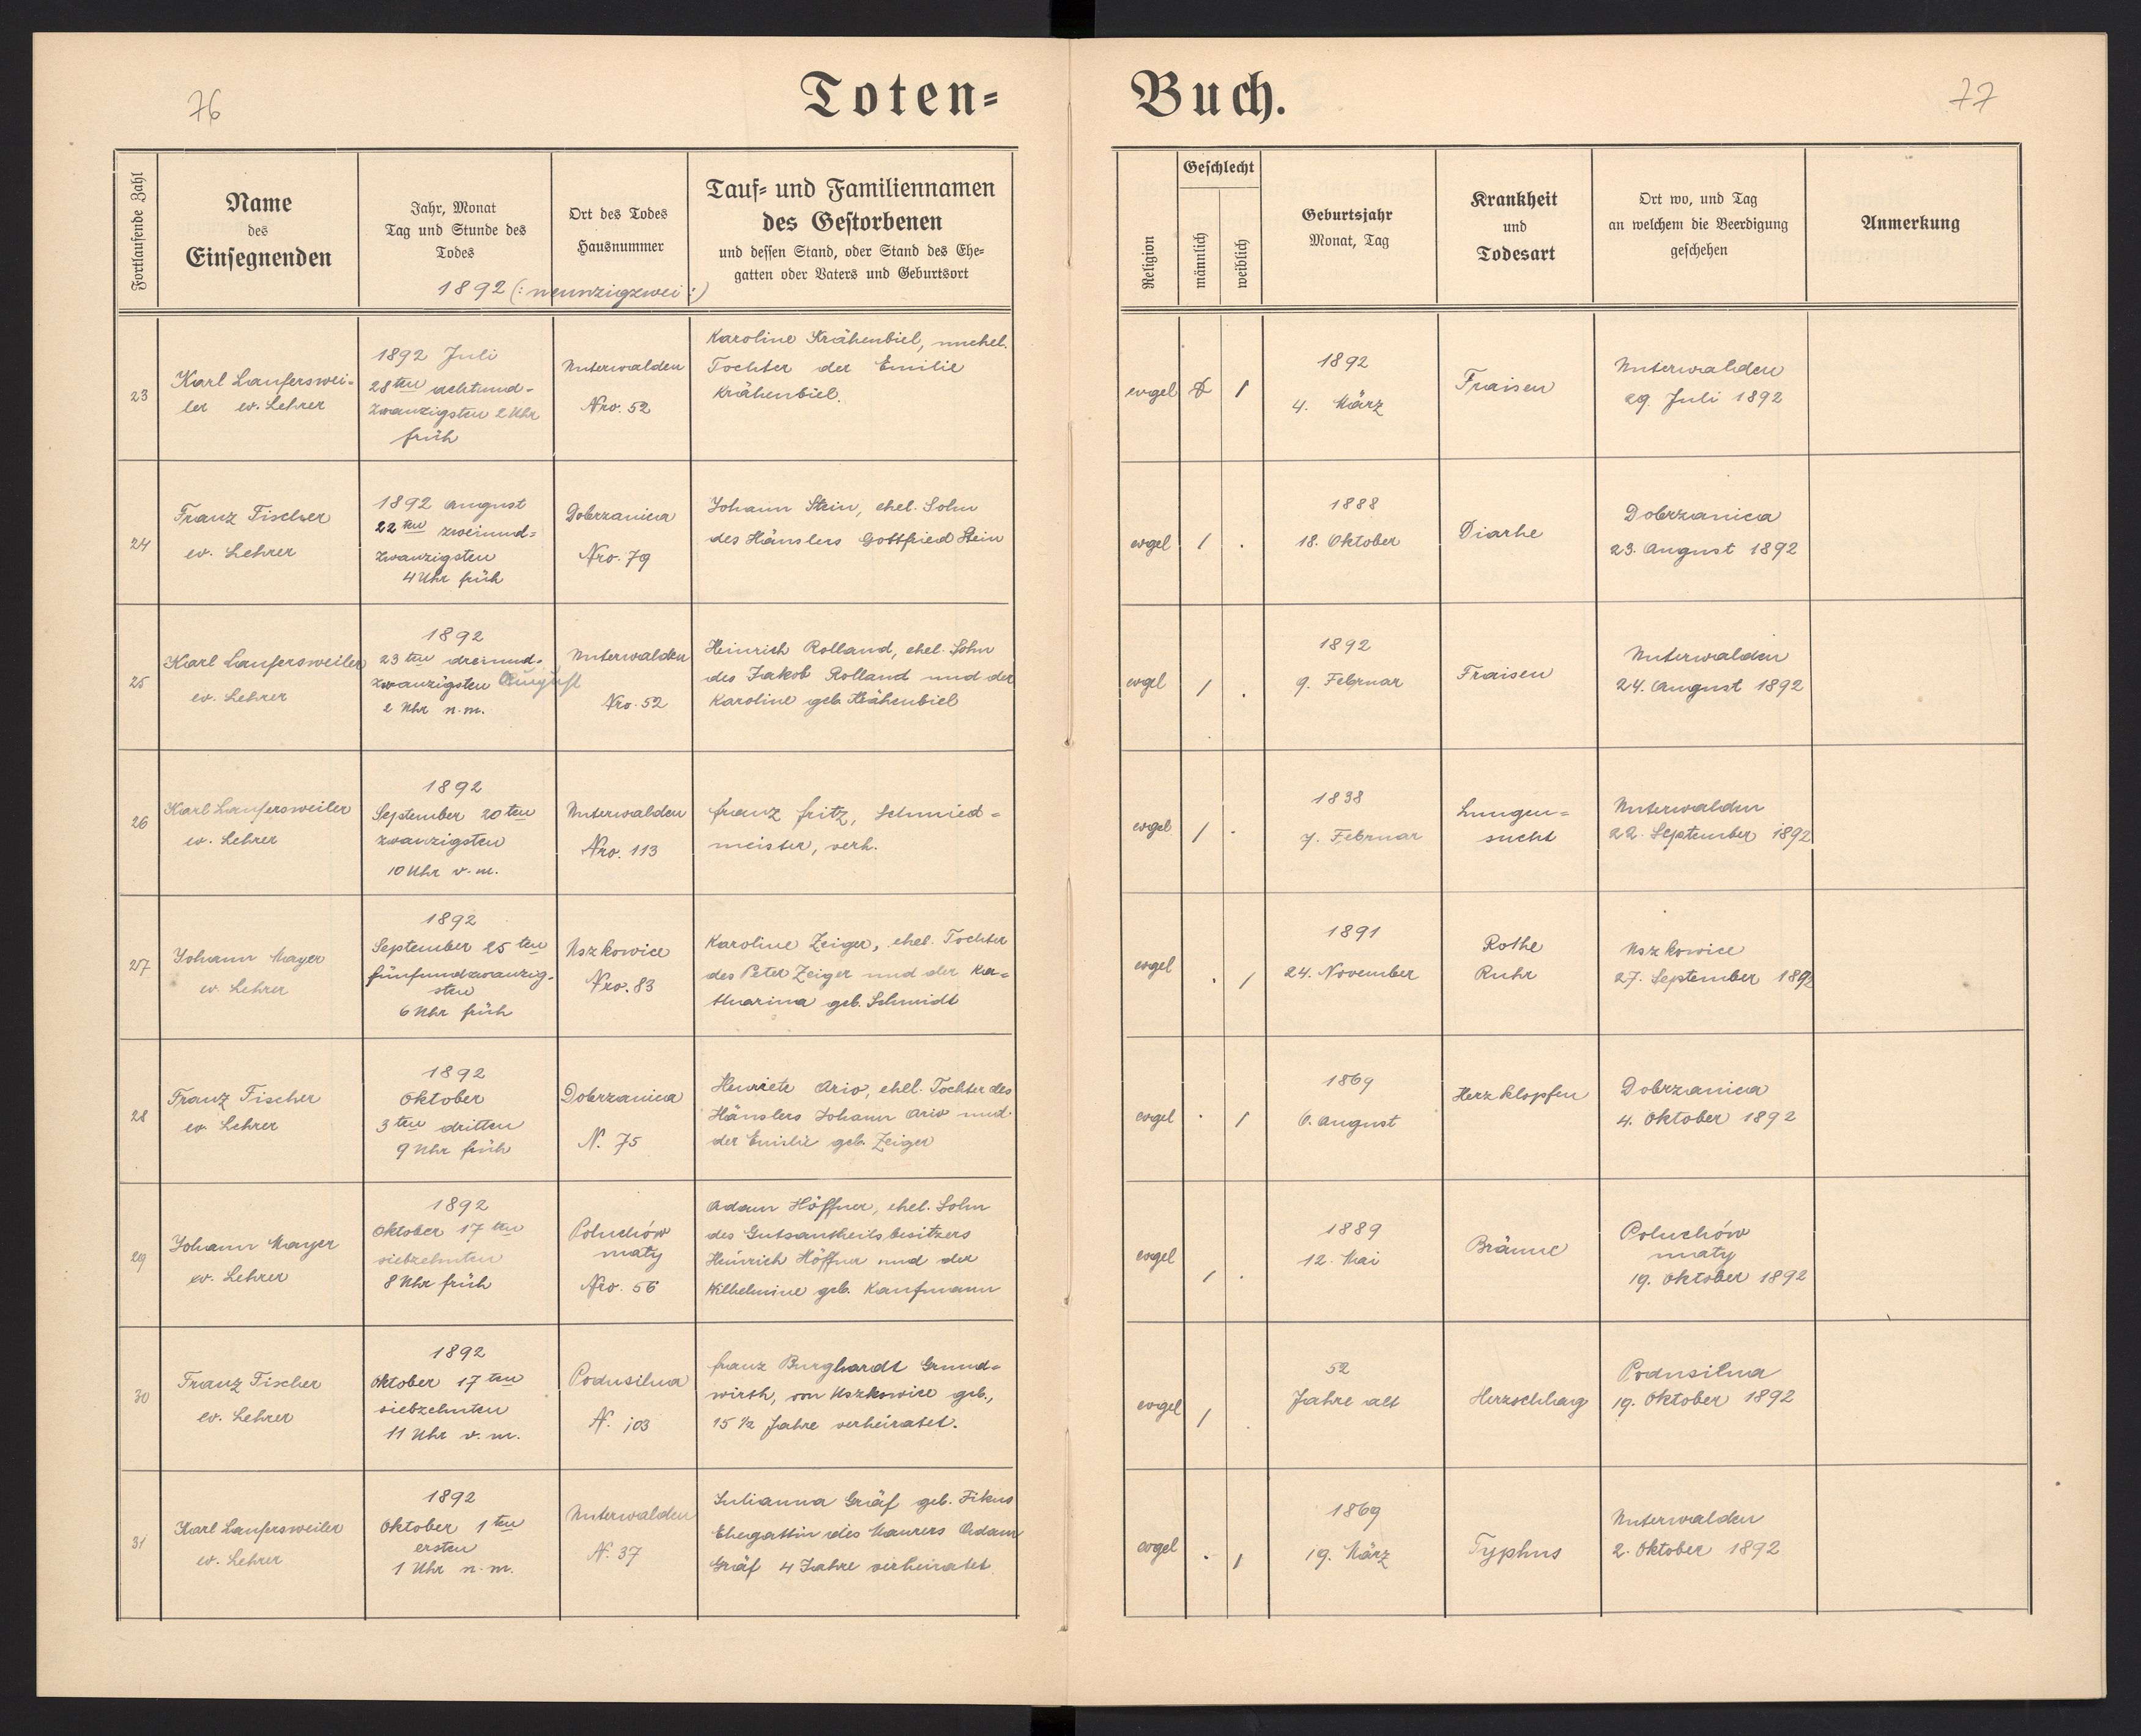 76
Toten=
Buch.
77
Fortlaufende Zahl
Name
des
Einsegnenden
Jahr, Monat
Tag und Stunde des
Todes
Ort des Todes
Hausnummer
Tauf= und Familiennamen
des Gestorbenen
und dessen Stand, oder Stand des Ehe=
gatten oder Vaters und Geburtsort
1892 (: neunzigzwei :)
Religion
Geschlecht
männlich
weiblich
Geburtsjahr
Monat, Tag
Krankheit
und
Todesart
Ort wo, und Tag
an welchem die Beerdigung
geschehen
Anmerkung
23
Karl Laufersswei=
ler ev. Lehrer
1892 Juli
28ten achtund=
zwanzigsten 2 Uhr
früh
Unterwalden
Nro. 52
Karoline Krähenbiel, unehel.
Tochter der Emilie
Krähenbiel.
evgel
1
1892
4. März
Fraisen
Unterwalden
29. Juli 1892
24
Franz Fischer
ev. Lehrer
1892 August
22ten zweiund=
zwanzigsten
4 Uhr früh
Dobrzanica
Nro. 79
Johann Stein, ehel. Sohn
des Häuslers Gottfried Stein
evgel
1 .
1888
18. Oktober
Diarhe
Dobrzanica
23. August 1892
25
Karl Laufersweiler
ev. Lehrer
1892
23ten dreiund=
zwanzigsten August
2 Uhr n. m.
Unterwalden
Nro. 52
Heinrich Rolland, ehel. Sohn
des Jakob Rolland und der
Karoline geb. Krähenbiel
evgel
1 .
1892
9. Februar
Fraisen
Unterwalden
24. August 1892
26
Karl Laufersweiler
ev. Lehrer
1892
September 20ten
zwanzigsten
10 Uhr v. m.
Unterwalden
Nro. 113
Franz Fritz, Schmied=
meister, verh.
evgel
1 .
1838
7. Februar
Lungen=
sucht
Unterwalden
22. September 1892
27
Johann Mayer
ev. Lehrer
1892
September 25ten
fünfundzwanzig=
sten
6 Uhr früh
Uszkowice
Nro. 83
Karoline Zeiger, ehel. Tochter
des Peter Zeiger und der Ka=
tharina geb. Schmidt
evgel
. 1
1891
24. November
Rothe
Ruhr
Uszkowice
27. September 1892
28
Franz Fischer
ev. Lehrer
1892
Oktober
3ten dritten
9 Uhr früh
Dobrzanica
N. 75
Henriete Ario, ehel. Tochter des
Häuslers Johann Ario und
der Emilie geb. Zeiger
evgel
. 1
1869
6. August
Herzklopfen
Dobrzanica
4. Oktober 1892
29
Johann Mayer
ev. Lehrer
1892
Oktober 17ten
siebzehnten
8 Uhr früh
Poluchów
maty
Nro. 56
Adam Höffner, ehel. Sohn
des Gutsantheilsbesitzers
Heinrich Höffner und der
Wilhelmine geb. Kaufmann
evgel
1 .
1889
12. Mai
Bräune
Poluchów
maty
19. Oktober 1892
30
Franz Fischer
ev. Lehrer
1892
Oktober 17ten
siebzehnten
11 Uhr v. m.
Podusilna
N. 103
Franz Burghardt Grund=
wirth, von Uszkowice geb.,
15 1/2 Jahre verheiratet.
evgel
1 .
52
Jahre alt
Herzschlag
Podusilna
19. Oktober 1892
31
Karl Laufersweiler
ev. Lehrer
1892
Oktober 1ten
ersten
1 Uhr n. m.
Unterwalden
N. 37
Julianna Gräf geb. Fikus
Ehegattin des Maurers Adam
Gräf 4 Jahre verheiratet
evgel
. 1
1869
19. März
Typhus
Unterwalden
2. Oktober 1892